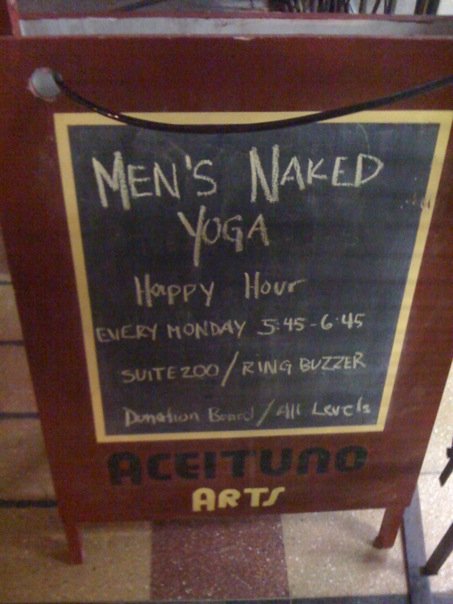 MEN'S NAKED
YOGA
Happy Hour
EVERY MONDAY 5:45-6:45
SUITE 200/RING BUZZER
Donation Based/All Levels
ACEITUNO
ARTS